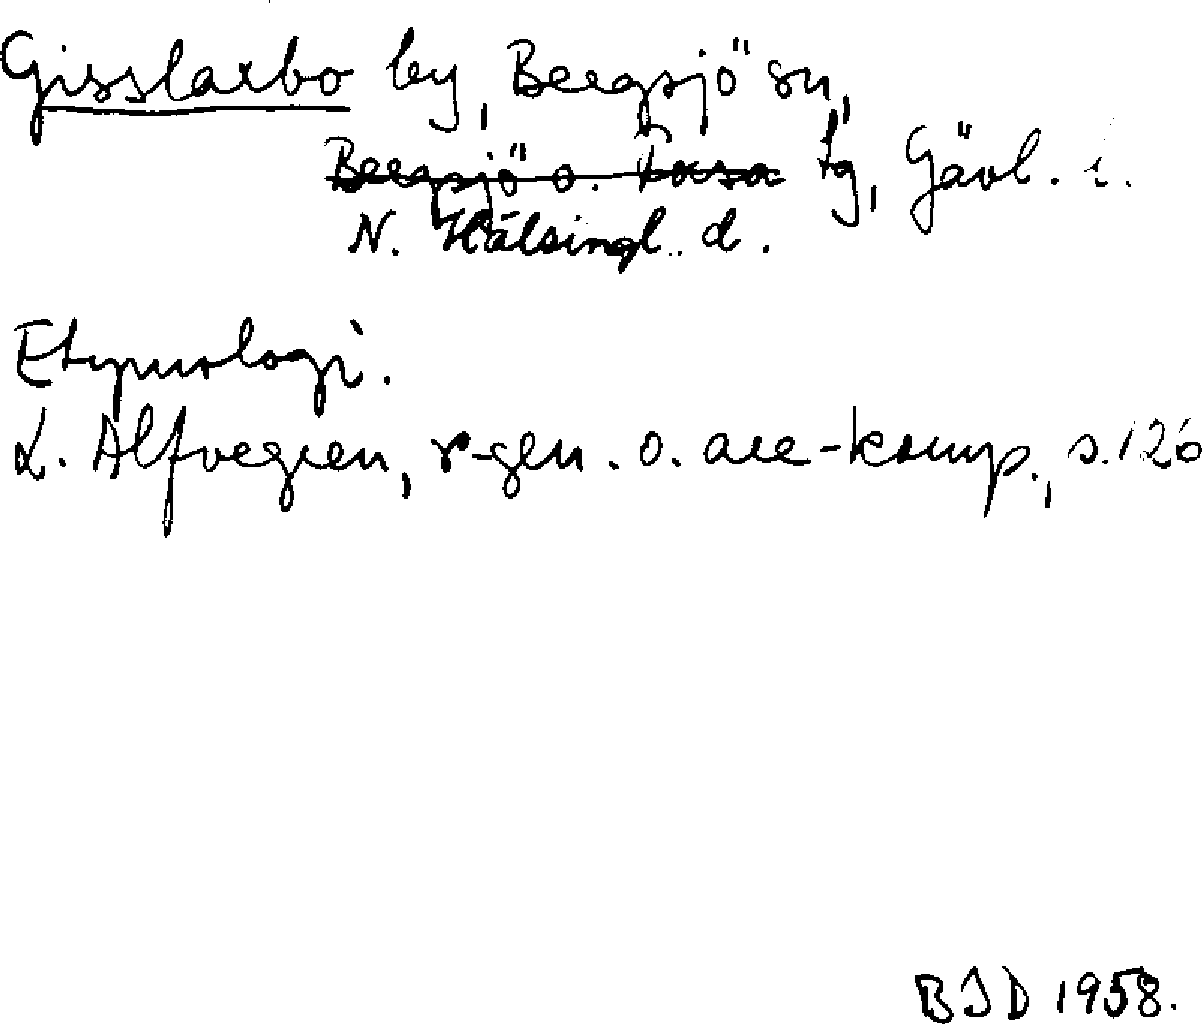 Gisslarbo by, Bergsjö sn,
Bergsjö o. Forsa tg, Gävl. l.
N. Hälsingl. d.
Etymologi.
L. Alfvegren, r-gen. o. are-komp., s. 126
BJD 1958.